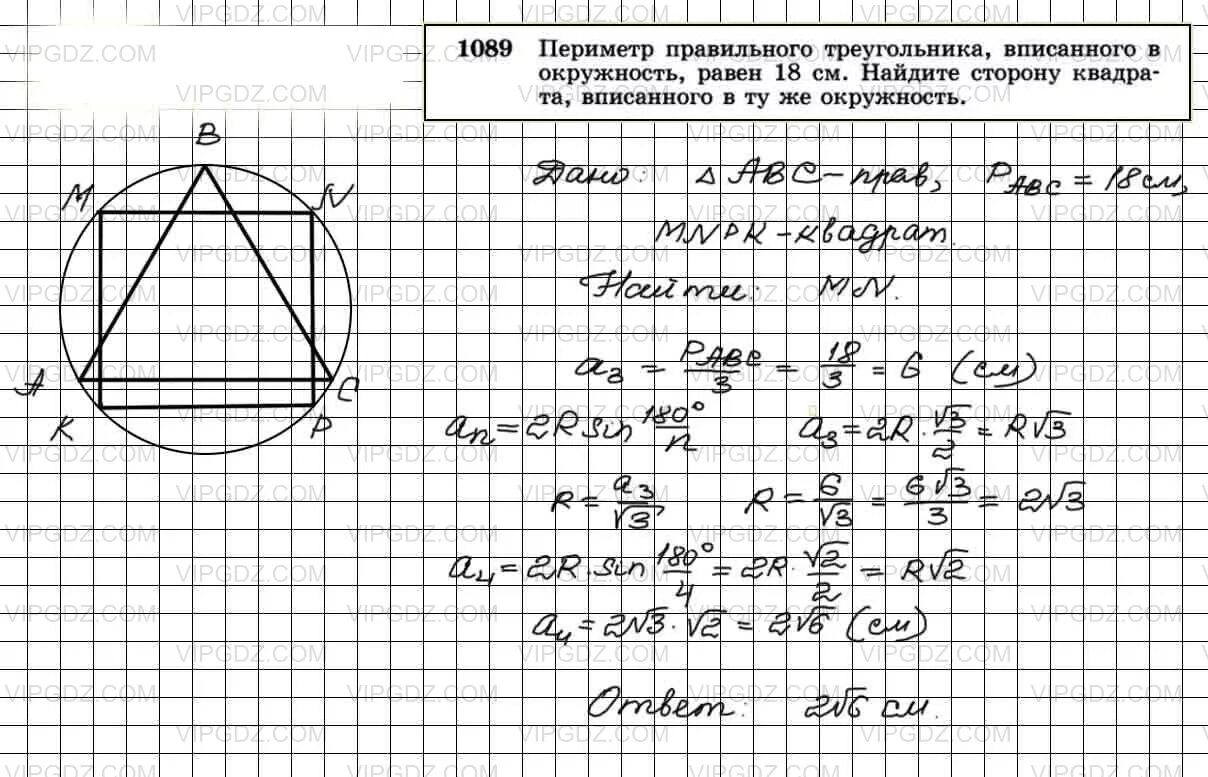 1089 Периметр правильного треугольника, вписанного в
окружность, равен 18 см. Найдите сторону квадра-
та, вписанного в ту же окружность.
B
M
N
A
C
K
P
Дано: △ ABC-прав, P_ABC = 18 см,
MNPK-квадрат.
Найти: MN.
a₃ = P_ABC/3 = 18/3 = 6 (см)
aₙ = 2R sin 180°/n a₃ = 2R · √3/2 = R√3
R = a₃/√3, R = 6/√3 = 6√3/3 = 2√3
a₄ = 2R · sin 180°/4 = 2R · √2/2 = R√2
a₄ = 2√3 · √2 = 2√6 (см)
Ответ: 2√6 см.
VIPGDZ.COM